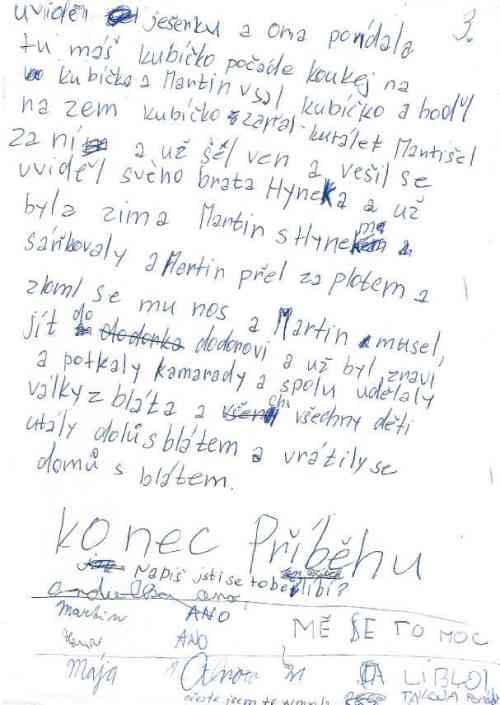 uviděl ješenku a ona pondala 3.
tu máš kubíčko počade koukej na
kubíčko a Martin vsal kubíčko a hodyl
na zem kubíčko začal kurálet Mantišel
za ní a už šel ven a vešil se
uviděl svěho brata Hyneka a už
byla zima Martin s Hynekem
sáňkovaly a Mertin přel za plotem a
zloml se mu nos a Martin musel
jít do dodorovi a už byl zraví
a potkaly kamarady a spolu udělaly
války z bláta a všechny děti
utály dolů s blátem a vrátily se
domů s blátem.
konec Příběhu
Napiš jsti se tobe líbí?
ano
Martin ANO
ANO MĚ SE TO MOC
Mája LÍBLOI
TAKOVA